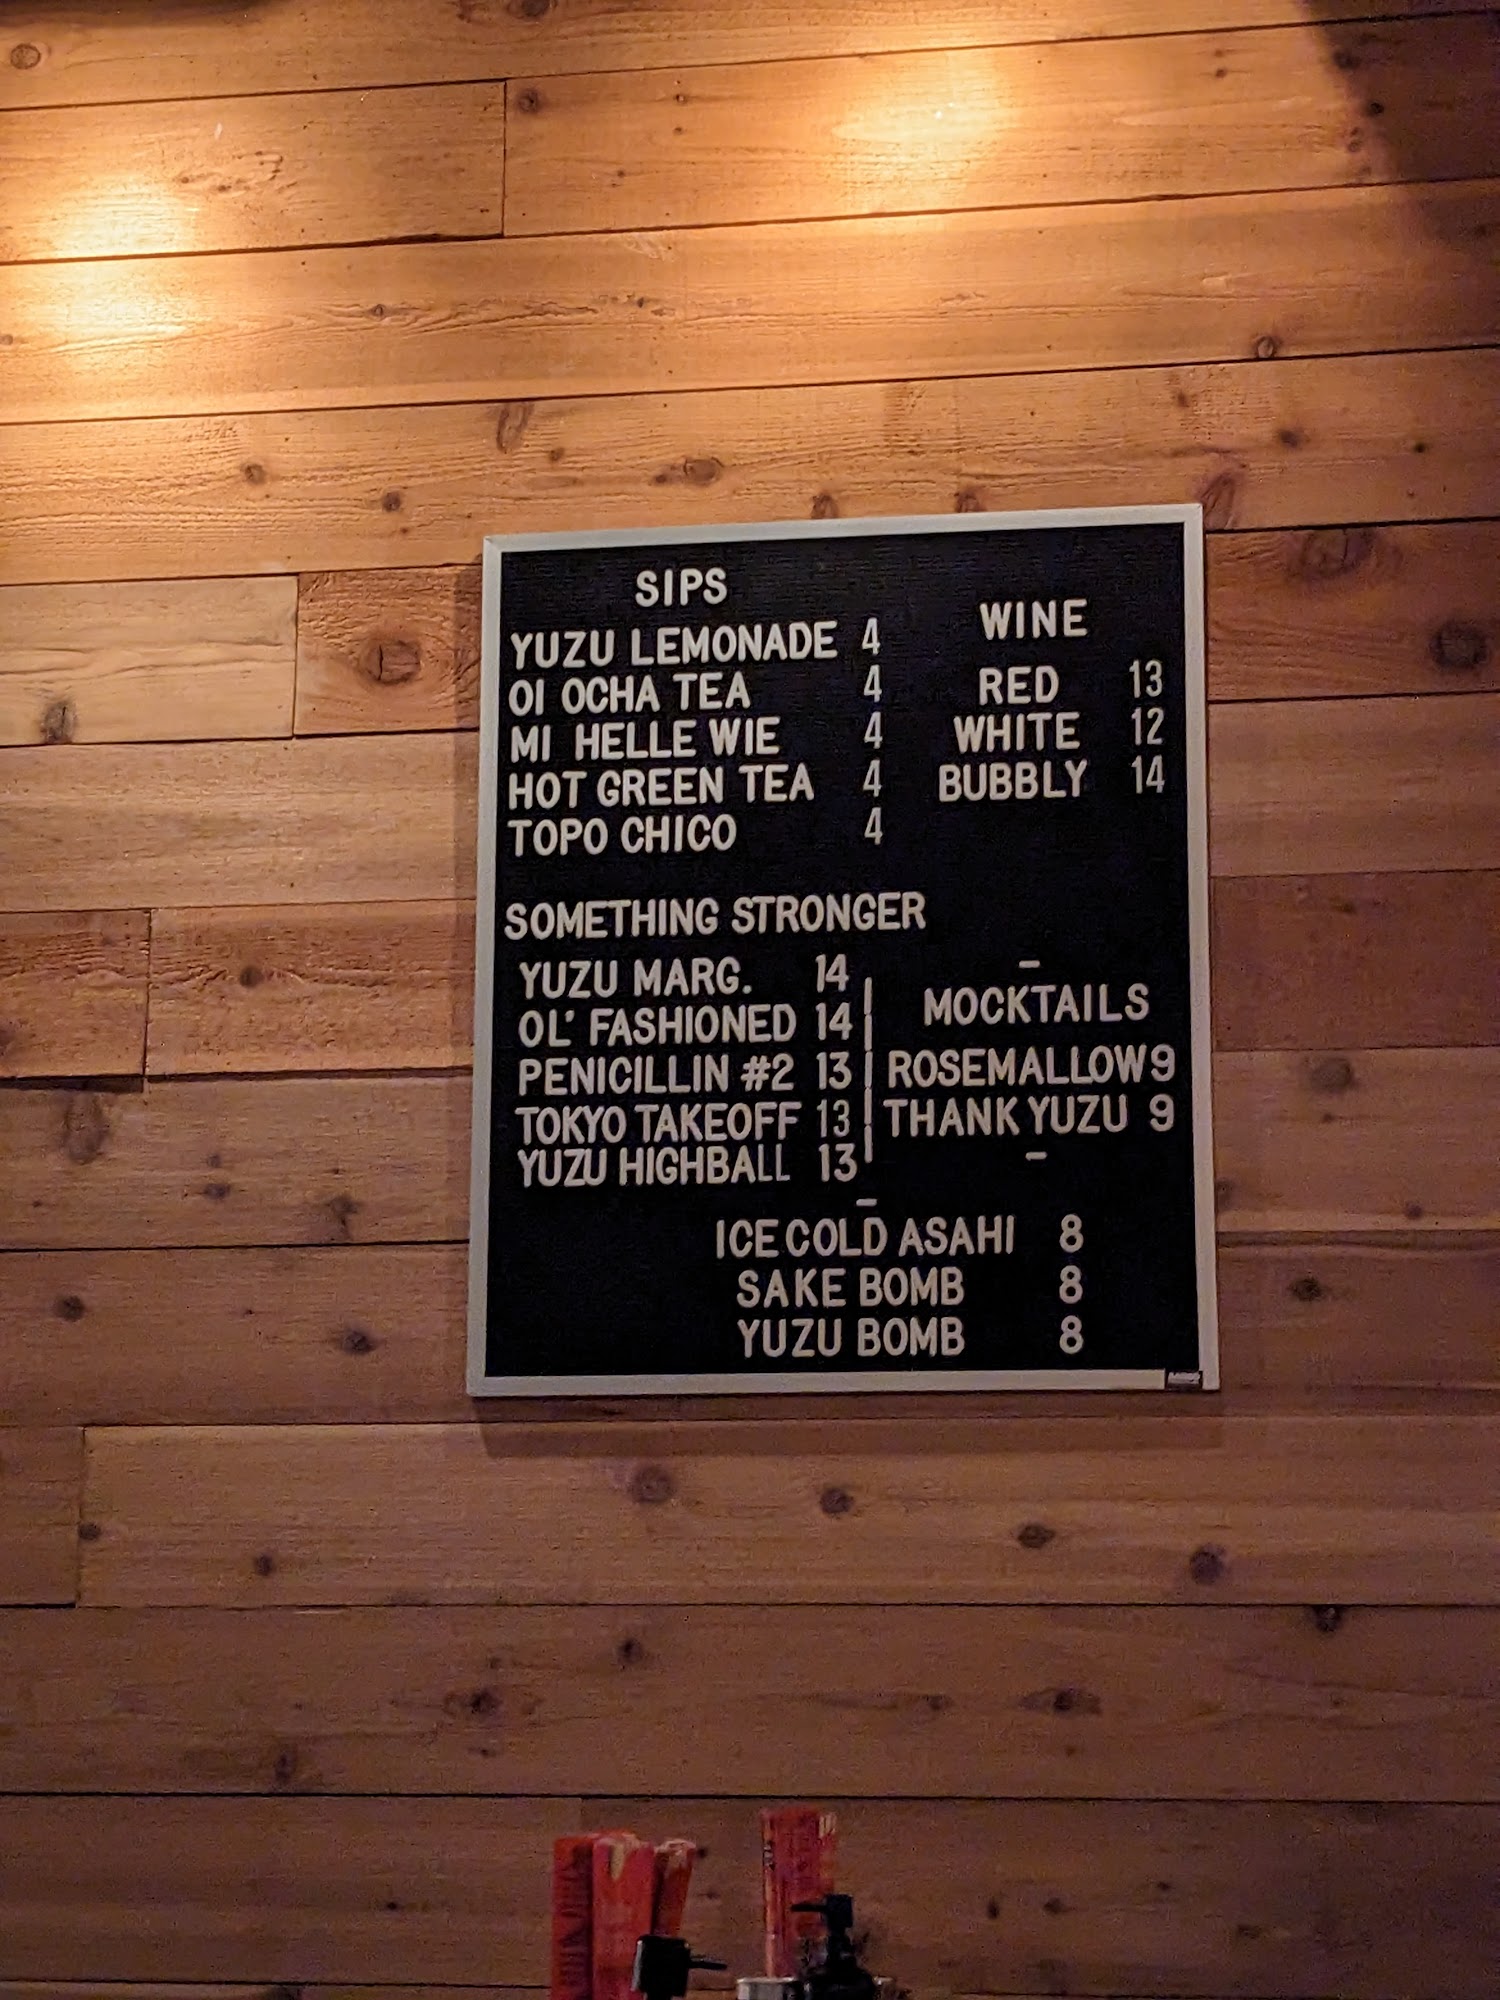 SIPS
YUZU LEMONADE 4
OI OCHA TEA 4
MI HELLE WIE 4
HOT GREEN TEA 4
TOPO CHICO 4
WINE
RED 13
WHITE 12
BUBBLY 14
SOMETHING STRONGER
YUZU MARG. 14
OL' FASHIONED 14
PENICILLIN #2 13
TOKYO TAKEOFF 13
YUZU HIGHBALL 13
–
MOCKTAILS
ROSEMALLOW 9
THANK YUZU 9
–
–
ICE COLD ASAHI 8
SAKE BOMB 8
YUZU BOMB 8